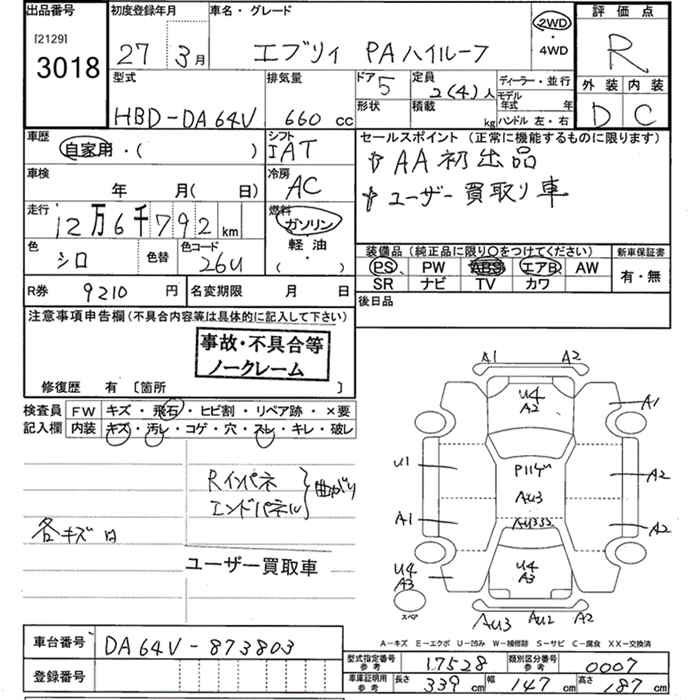 出品番号
[2129]
3018
初度登録年月
27 3月
車名・グレード
エブリィ PAハイルーフ
2WD
・
4WD
評価点
R
外装 内装
D C
型式
HBD-DA64V
排気量
660 cc
ドア 5
形状
定員
2(4)人
積載
kg
ディーラー・並行
モデル年式 年
ハンドル 左・右
車歴
自家用・( )
シフト
IAT
車検
年 月( 日)
冷房
AC
走行
12万6千792km
燃料
ガソリン
軽油
( )
色
シロ
色替
色コード
26U
セールスポイント(正常に機能するものに限ります)
AA初出品
ユーザー買取り車
装備品(純正品に限り○をつけてください)
PS PW ABS エアB AW
SR ナビ TV カワ
新車保証書
有・無
R券 9210 円
名変期限 月 日
後日品
注意事項申告欄(不具合内容等は具体的に記入して下さい)
事故・不具合等
ノークレーム
修復歴 有 〔箇所 〕
検査員
記入欄
FW キズ・飛石・ヒビ割・リペア跡・×要
内装 キズ・汚レ・コゲ・穴・スレ・キレ・破レ
Rインパネ
エンドパネル
曲がり
各キズ凹
ユーザー買取車
A1 A2
U4
A2
A1
U1
P114
AU3
A2
A1
AU3S2
A2
U4
A3
U4
A3
スペア
AU3 AU2 A2
A-キズ E-エクボ U-凹み W-補修跡 S-サビ C-腐食 XX-交換済
車台番号
DA64V-873803
登録番号
型式指定番号
参考
17528
類別区分番号
参考
0007
車庫証明用
参考
長さ 339 cm 幅 147 cm 高さ 187 cm